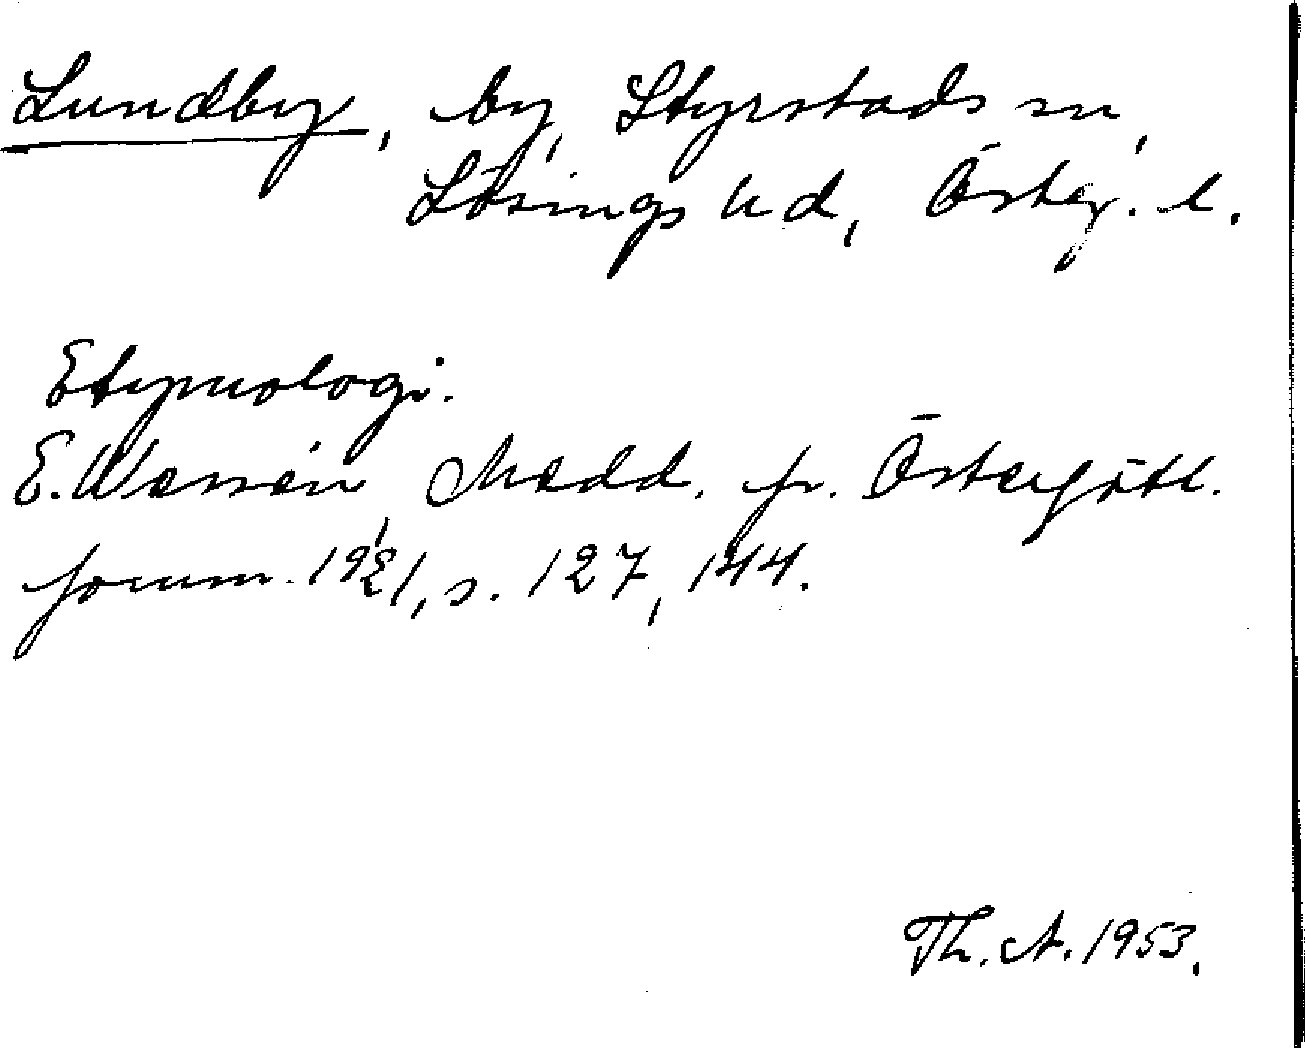 Lundby, by, Styrstads sn,
Lösings hd, Österg. l.
Etymologi.
E. Wessén, Medd. fr. Östergötl.
fornm. 1921, s. 127, 144.
Th. A. 1953.